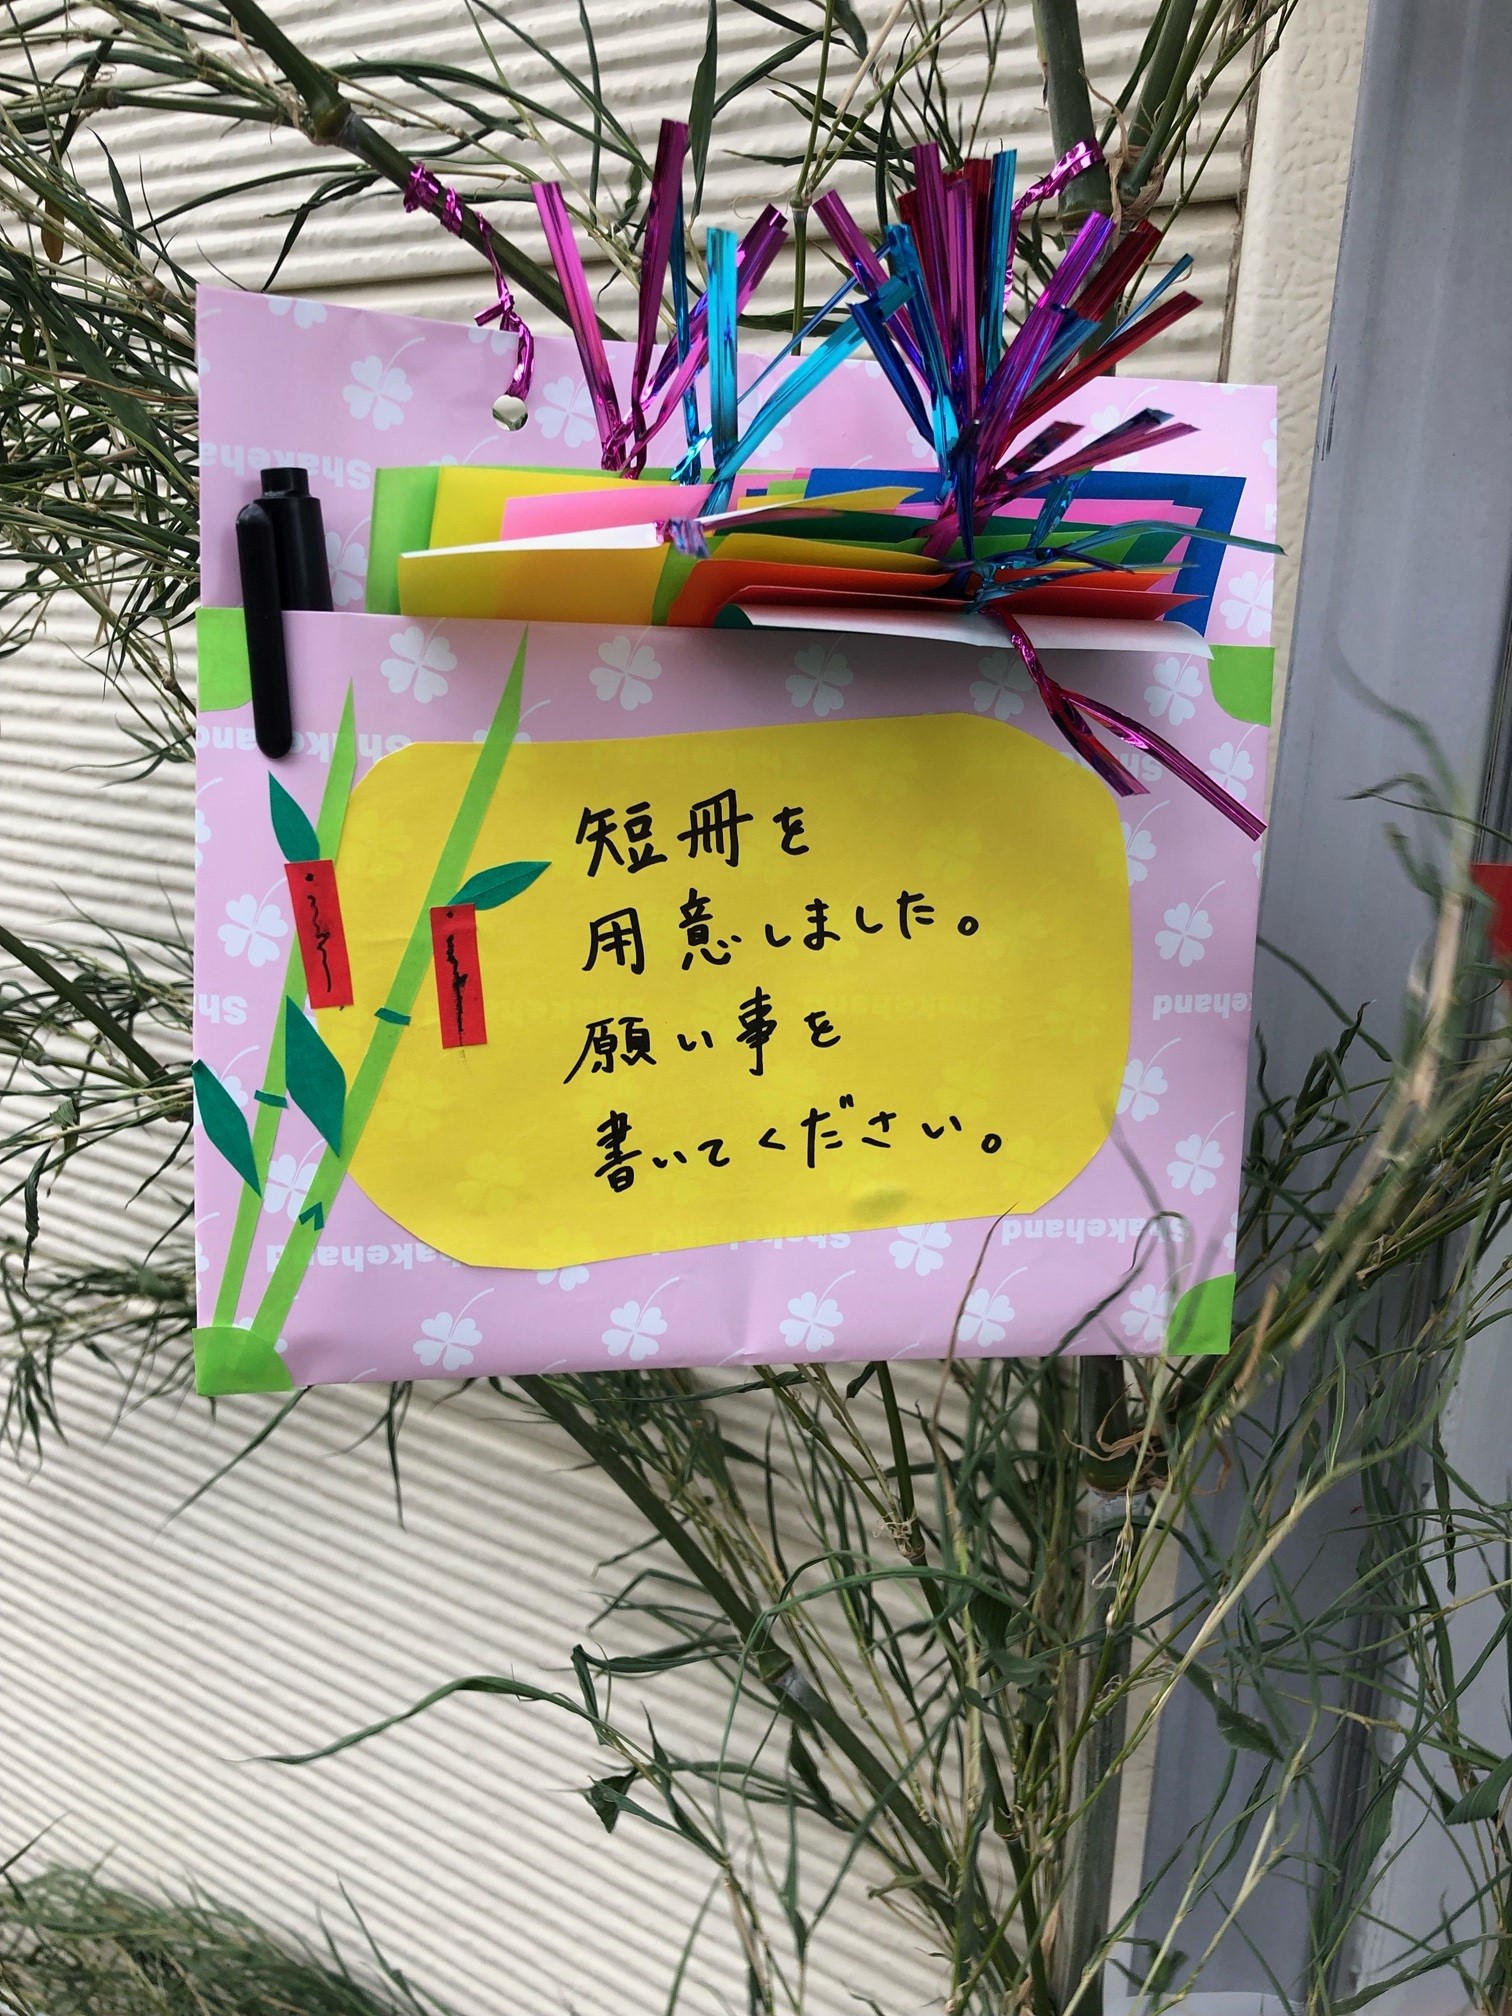 Shakeha
Shakehand
Shakehand
短冊を
用意しました。
願い事を
書いてください。
Sh
kehand
Shakehand
Shakehand